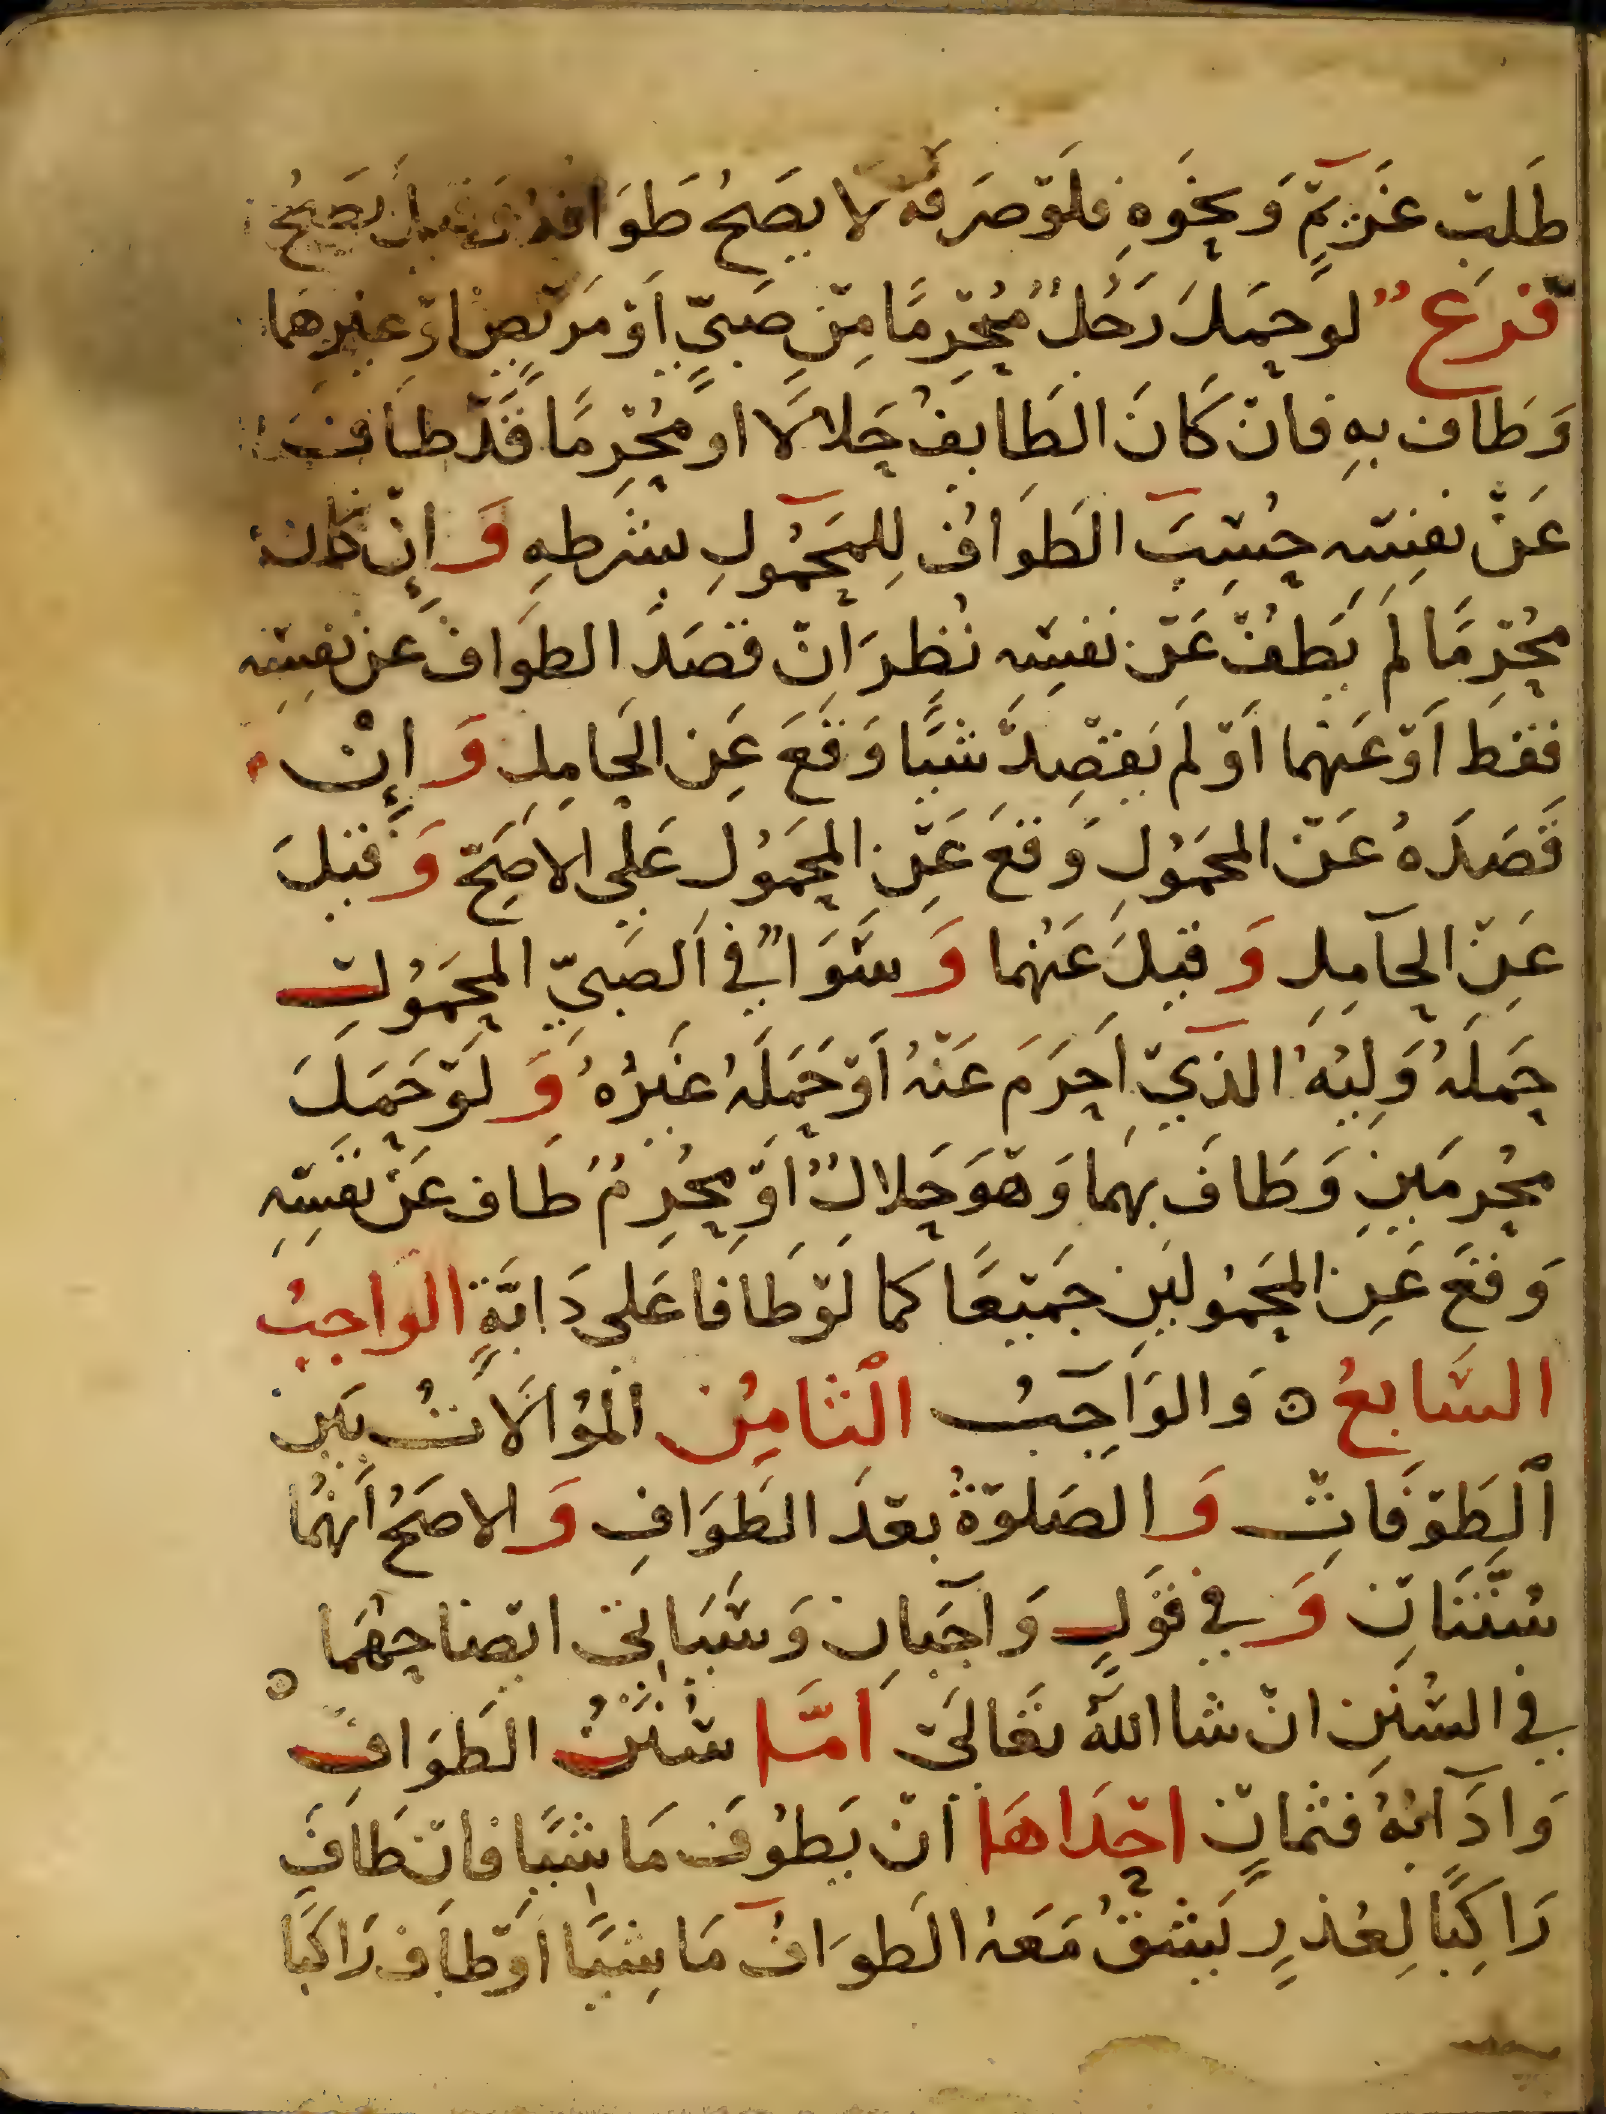 طَلَبِ غَرِيْمٍ وَنَحْوِهِ فَلَوْ صَرَفَهُ لا يَصِحُ طَوَافُهُ وَقِيلَ يَصِحُ
فَرْعٌ لو حَمَلَ رَجُلٌ مُحْرِمًا مِنْ صَبِيٍّ أوْ مَرِيْضٍ اوْ غيرِهِمَا
وَطَاف بِهِ فانْ كَانَ الطَايِفُ حَلالاً او مُحْرِمًا قَدْ طَافَ
عَنْ نفسِهِ حُسِبَ الطَوَافُ لِلمَحْمُولِ بِشَرطِهِ وَإِنْ كان
مُحْرِمًا لَمْ يَطُفْ عَنْ نفسِه نُظِرَ انْ قَصَدَ الطوَافَ عَن نفسِه
فقَط أوْ عَنهما أوْ لَمْ يَقْصِدْ شيًا وَقَعَ عَنِ الحَامِلِ وَإنْ
قَصَدَهُ عَنْ المحمُولِ وَقَعَ عَنْ المحمُولِ عَلَي الاصَحِّ وَقيلَ
عَنْ الحَامِلِ وَقيلَ عَنهُما وَسَوَاٌ في الصَبيّ المحمُولِ
حَمَلَهُ وَلِيُهُ الذِيْ احرَمَ عَنْهُ أوْ حَمَلَهُ غيرُهُ وَلَوْ حَمَلَ
مُحرِمَينِ وَطَافَ بِهِمَا وَهْوَ حَلالٌ أوْ مُحْرِمٌ طَاف عَنْ نفسِهِ
وَقَعَ عَنِ المحمُولَينِ جَمِيْعًا كما لَوْ طَافَا عَلى دَابَّةٍ الواجبُ
السَّابعُ ه وَالوَاجِبُ الْثامِنُ المُوَالَاتُ بَين
الْطَوْفَاتْ وَالصَلوةُ بعْدَ الطَوَافِ وَالاصَحُ أنهُما
سُنّتَانْ وَفي قَولٍ وَاجِبَانِ وَسَيَاتِي ايضاحِهُمَا
في السُنَنِ انْ شا اللّهُ تَعَالَى امَّا سُنَنُ الطَوَافِ ه
وَادَآبُهُ فَثمانٍ احْدَاهَا انْ يَطُوفَ مَاشيًا فانْ طَافَ
رَاكِبًا لِعُذرٍ يَشقُ مَعَهُ الطَوَافُ مَاشِيًا أوْ طَاف رَاكبًا